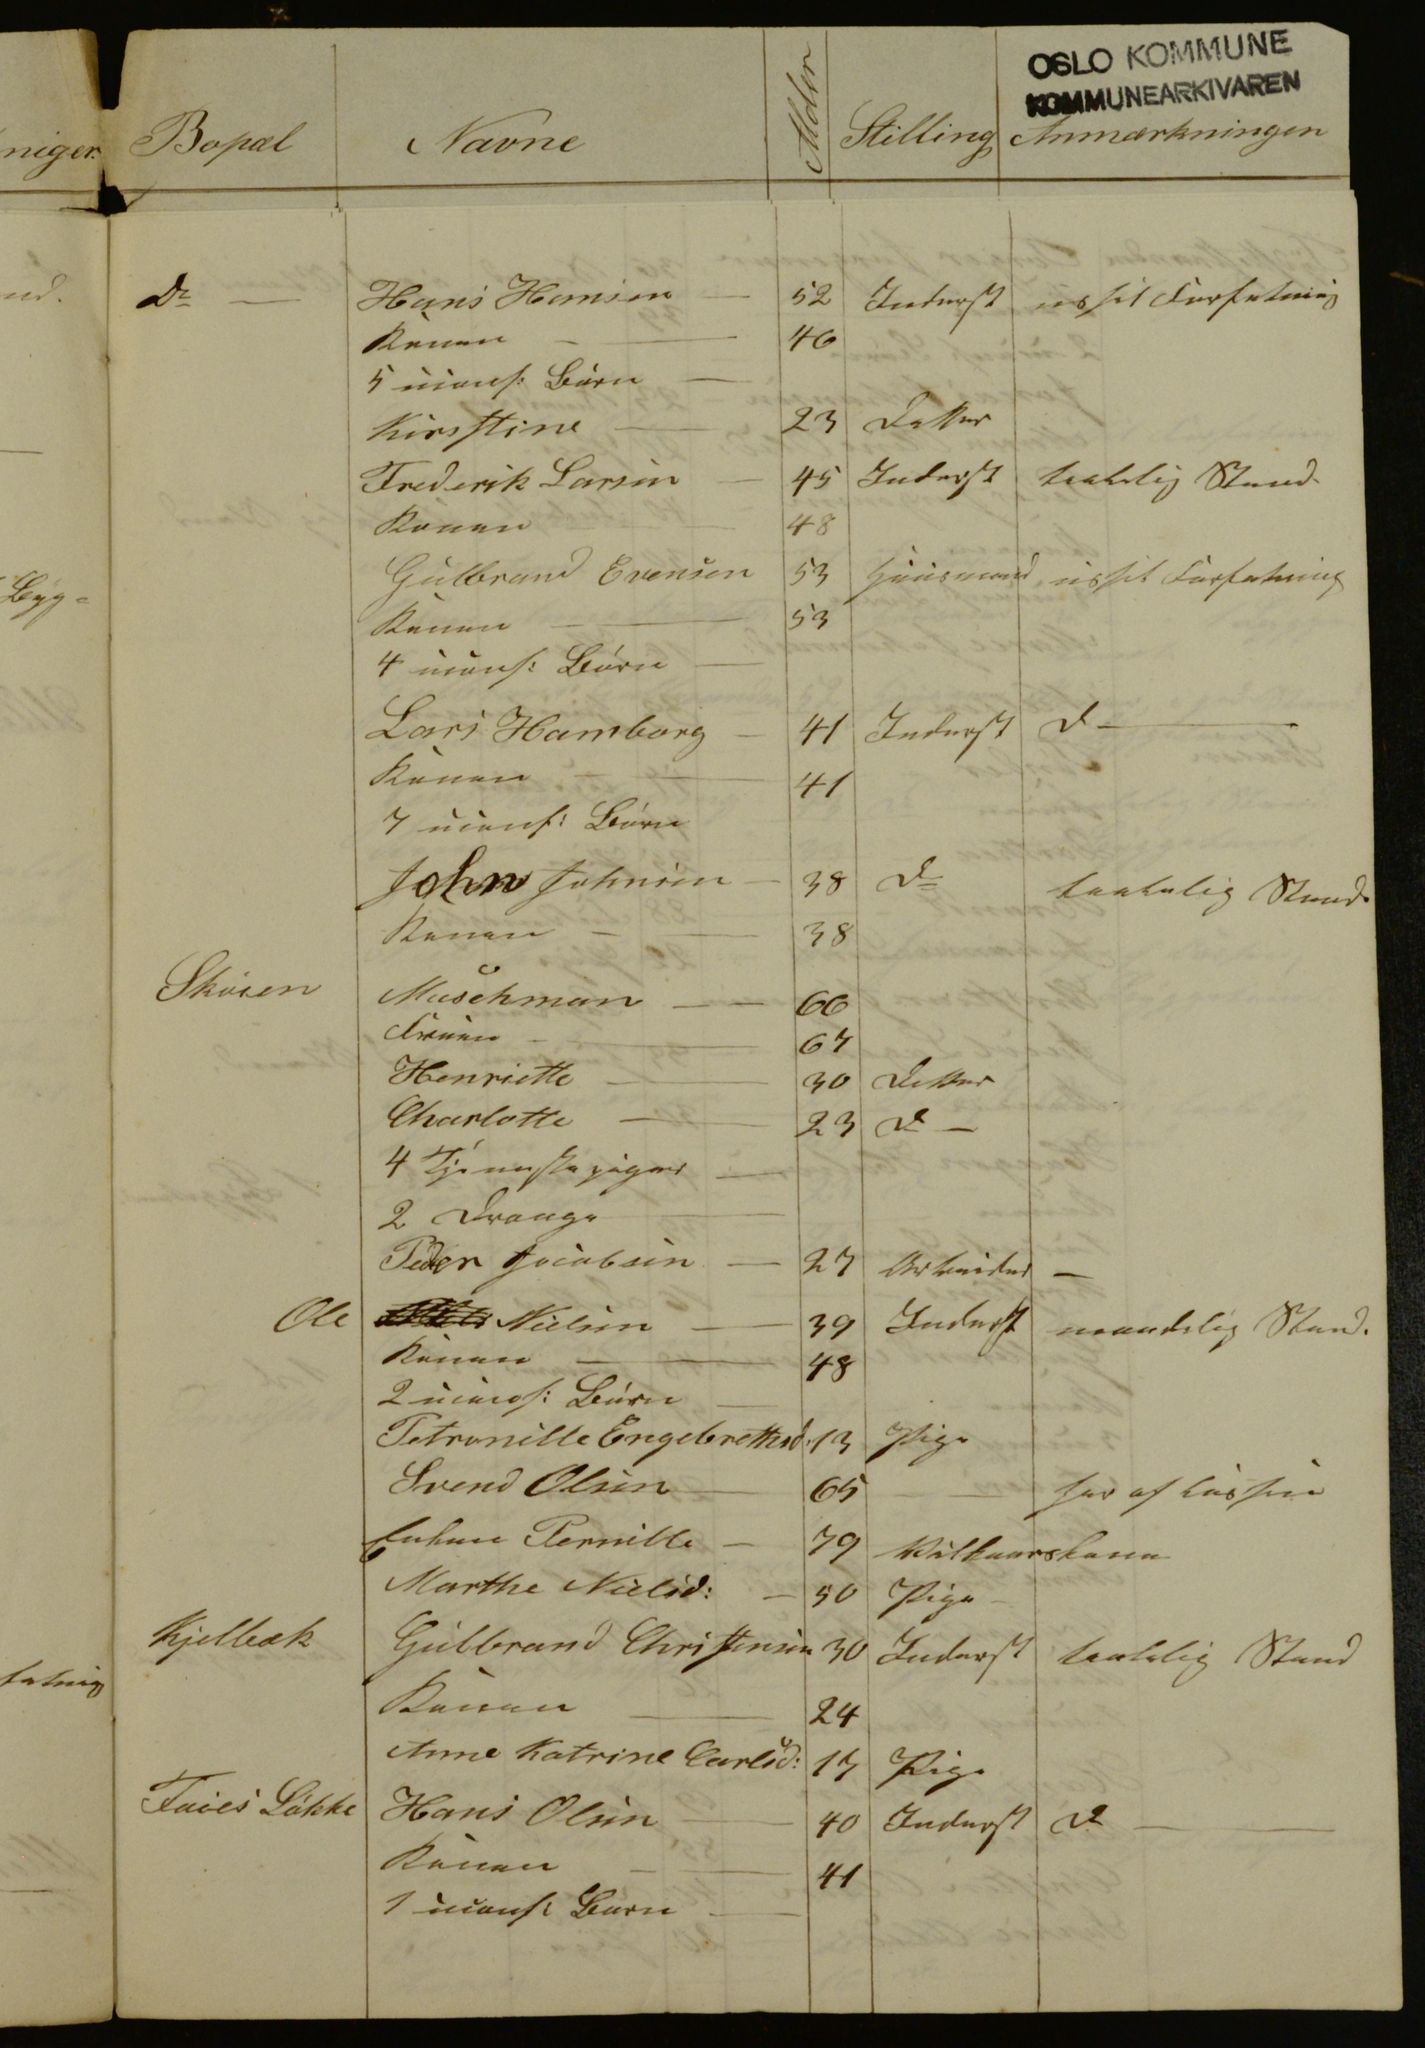 OSLO KOMMUNE
KOMMUNEARKIVAREN
niger.
Bopæl Navne Alder Stilling Anmærkninger
Do — Hans Hansen — 52 Inderst ussel Forfatning
Konen — 46
5 uconf: Børn —
Kirstine — 23 Datter
Frederik Larsen — 45 Inderst taalelig Stand.
Konen 48
Gulbrand Evensen 53 Huusmand ussel Forfatning
Konen — 53
4 uconf: Børn —
Lars Hamborg — 41 Inderst Do —
Konen — 41
7 uconf: Børn
John Johnsen — 38 Do taalelig Stand.
Konen — 38
Skøien Muschman — 66
Fruen — 67
Henriette — 30 Datter
Charlotte — 23 Do —
4 Tjenestepiger —
2 Drenge —
Peder Jacobsen — 27 Arbeider —
Ole Nielsen — 39 Inderst maadelig Stand.
Konen — 48
2 uconf: Børn —
Petronille Engebrethsd. 13 Pige
Svend Olsen — 65 —
Enken Pernille — 79 Vilkaarskone
Marthe Nielsd: — 50 Pige —
Kjelbæk Gulbrand Christensen 30 Inderst taalelig Stand
Konen — 24
Anne Katrine Carlsd: 17 Pige
Faies Løkke Hans Olsen — 40 Inderst Do —
Konen — 41
1 uconf: Barn —